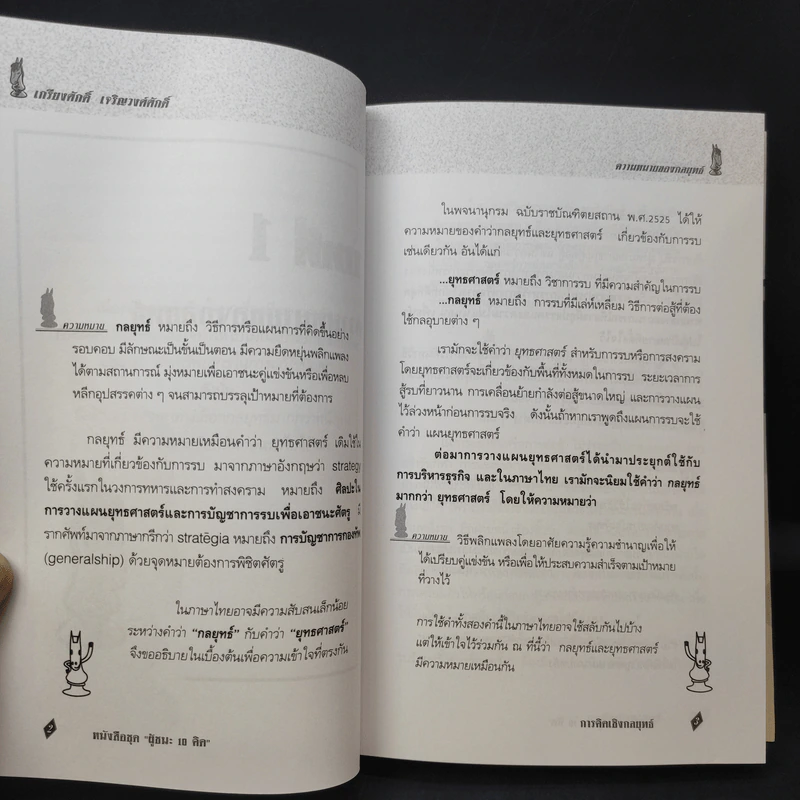 เกรียงศักดิ์ เจริญวงศ์ศักดิ์
ความหมาย กลยุทธ์ หมายถึง วิธีการหรือแผนการที่คิดขึ้นอย่าง
รอบคอบ มีลักษณะเป็นขั้นเป็นตอน มีความยืดหยุ่นพลิกแพลง
ได้ตามสถานการณ์ มุ่งหมายเพื่อเอาชนะคู่แข่งขันหรือเพื่อหลบ
หลีกอุปสรรคต่าง ๆ จนสามารถบรรลุเป้าหมายที่ต้องการ
กลยุทธ์ มีความหมายเหมือนคำว่า ยุทธศาสตร์ เดิมใช้ใน
ความหมายที่เกี่ยวข้องกับการรบ มาจากภาษาอังกฤษว่า strategy
ใช้ครั้งแรกในวงการทหารและการทำสงคราม หมายถึง ศิลปะใน
การวางแผนยุทธศาสตร์และการบัญชาการรบเพื่อเอาชนะศัตรู
รากศัพท์มาจากภาษากรีกว่า stratēgia หมายถึง การบัญชาการกองทัพ
(generalship) ด้วยจุดหมายต้องการพิชิตศัตรู
ในภาษาไทยอาจมีความสับสนเล็กน้อย
ระหว่างคำว่า “กลยุทธ์” กับคำว่า “ยุทธศาสตร์”
จึงขออธิบายในเบื้องต้นเพื่อความเข้าใจที่ตรงกัน
2
หนังสือชุด "ผู้ชนะ 10 คิด"
ความหมายของกลยุทธ์
ในพจนานุกรม ฉบับราชบัณฑิตยสถาน พ.ศ.2525 ได้ให้
ความหมายของคำว่ากลยุทธ์และยุทธศาสตร์ เกี่ยวข้องกับการรบ
เช่นเดียวกัน อันได้แก่
...ยุทธศาสตร์ หมายถึง วิชาการรบ ที่มีความสำคัญในการรบ
...กลยุทธ์ หมายถึง การรบที่มีเล่ห์เหลี่ยม วิธีการต่อสู้ที่ต้อง
ใช้กลอุบายต่าง ๆ
เรามักจะใช้คำว่า ยุทธศาสตร์ สำหรับการรบหรือการสงคราม
โดยยุทธศาสตร์จะเกี่ยวข้องกับพื้นที่ทั้งหมดในการรบ ระยะเวลาการ
สู้รบที่ยาวนาน การเคลื่อนย้ายกำลังต่อสู้ขนาดใหญ่ และการวางแผน
ไว้ล่วงหน้าก่อนการรบจริง ดังนั้นถ้าหากเราพูดถึงแผนการรบจะใช้
คำว่า แผนยุทธศาสตร์
ต่อมาการวางแผนยุทธศาสตร์ได้นำมาประยุกต์ใช้กับ
การบริหารธุรกิจ และในภาษาไทย เรามักจะนิยมใช้คำว่า กลยุทธ์
มากกว่า ยุทธศาสตร์ โดยให้ความหมายว่า
ความหมาย วิธีพลิกแพลงโดยอาศัยความรู้ความชำนาญเพื่อให้
ได้เปรียบคู่แข่งขัน หรือเพื่อให้ประสบความสำเร็จตามเป้าหมาย
ที่วางไว้
การใช้คำทั้งสองคำนี้ในภาษาไทยอาจใช้สลับกันไปบ้าง
แต่ให้เข้าใจไว้ร่วมกัน ณ ที่นี้ว่า กลยุทธ์และยุทธศาสตร์
มีความหมายเหมือนกัน
การคิดเชิงกลยุทธ์
3